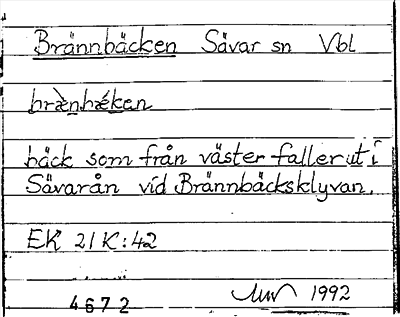 Brännbäcken Sävar sn Vbl
bræ̀nbǽken
bäck som från väster faller ut i
Sävarån vid Brännbäcksklyvan.
EK 21K:42
4672 1992